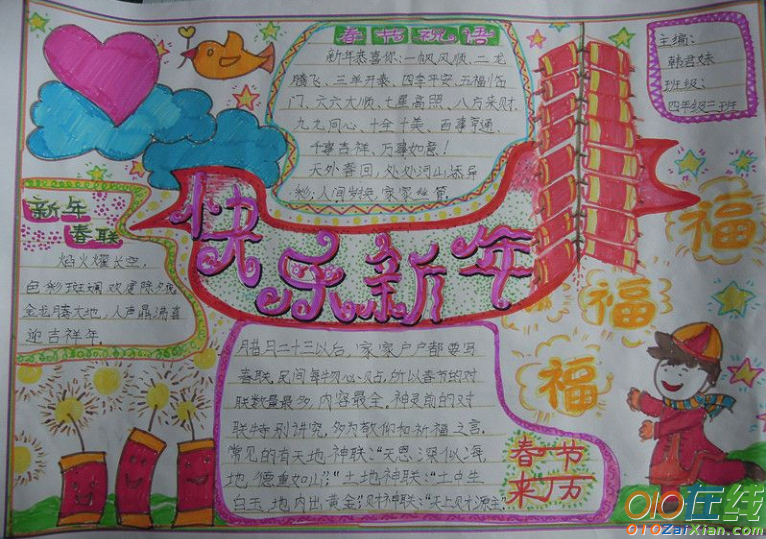 春节祝语
新年恭喜你:一帆风顺、二龙
腾飞、三羊开泰、四季平安、五福临
门、六六大顺、七星高照、八方来财、
九九同心、十全十美、百事亨通、
千事吉祥、万事如意!
天外春回,处处河山添异
彩;人间岁换,家家丝管
主编:
韩君妹
班级:
四年级三班
新年
春联
焰火耀长空,
色彩斑斓欢度除夕夜
金龙腾大地,人声鼎沸喜
迎吉祥年。
快乐新年
福
福
福
腊月二十三以后,家家户户都要写
春联,民间每物必贴,所以春节的对
联数量最多,内容最全。神灵前的对
联特别讲究,多为敬仰和祈福之言。
常见的有天地神联:“天恩深似海,
地德重如山”;“土地神联:“土中生
白玉,地内出黄金”;财神联:“天上财源主
春节
来历
010在线
010ZaiXian.com